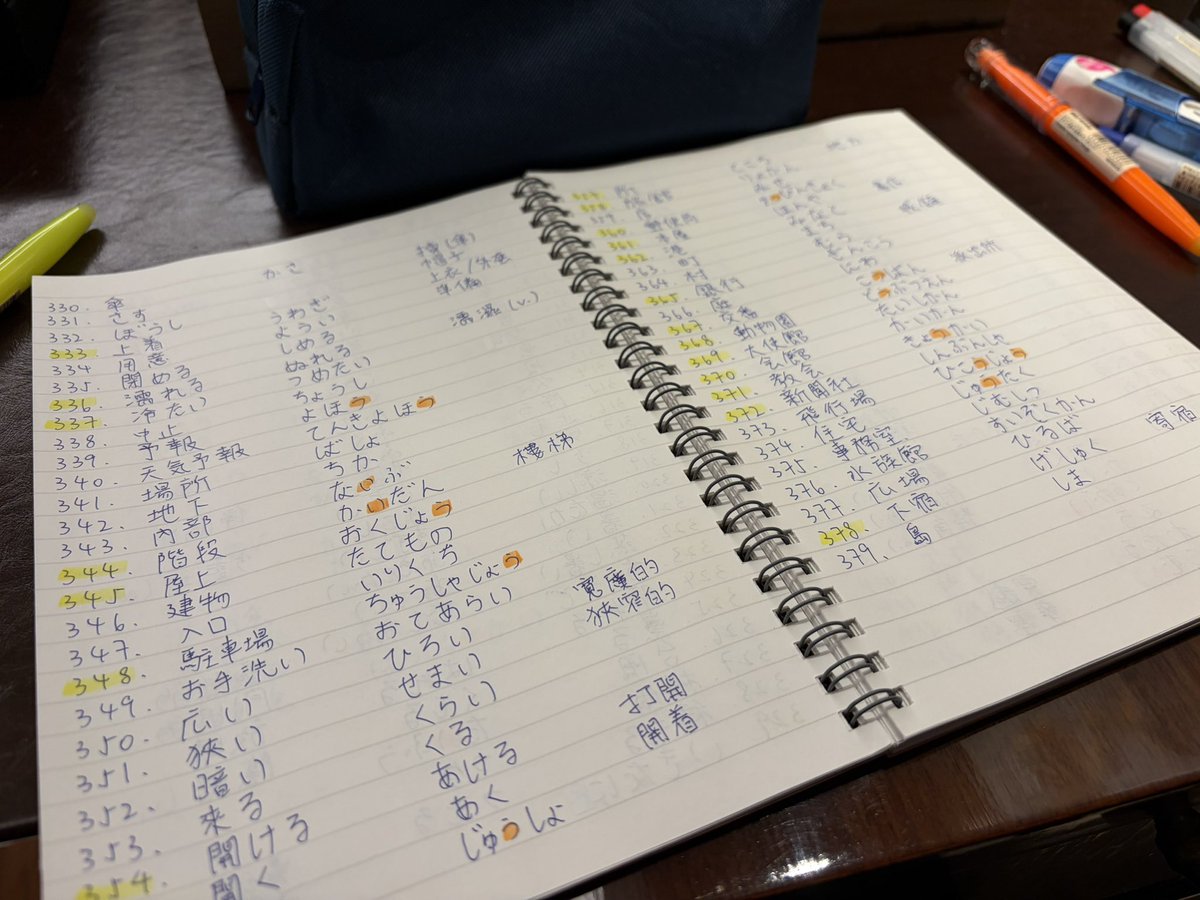 330. 傘 かさ
331. さす 撐(傘)
332. ぼうし 帽子
333. 上着 うわぎ 上衣/外套
334 用意 ようい 準備
335. 閉める しめる
336. 濡れる ぬれる 濡濕(v.)
337. 冷たい つめたい
338. 中止 ちょうし
339. 予報 よほう
340. 天気予報 てんきよほう
341. 場所 ばしょ
342. 地下 ちか
343. 内部 ないぶ
344. 階段 かいだん 樓梯
345. 屋上 おくじょう
346. 建物 たてもの
347. 入口 いりぐち
348. 駐車場 ちゅうしゃじょう
349. お手洗い おてあらい
350. 広い ひろい 寬廣的
351. 狭い せまい 狹窄的
352. 暗い くらい
353. 来る くる
354. 開ける あける 打開
開く あく 開着
じゅうしょ
所 ところ 地方
旅館
359. 店
360 郵便局
361.
362. 港
363. 町
364. 村
365. 銀行
366. 交番 こうばん
367 動物園 どうぶつえん
368 大使館 たいしかん
369 会館 かいかん
370. 教会 きょうかい
371. 新聞社 しんぶんしゃ
372. 飛行場 ひこうじょう
373. 住宅 じゅうたく
374. 事務室 じむしつ
375. 水族館 すいぞくかん
376. 広場 ひろば
377. 下宿 げしゅく 寄宿
378. 島 しま
379.